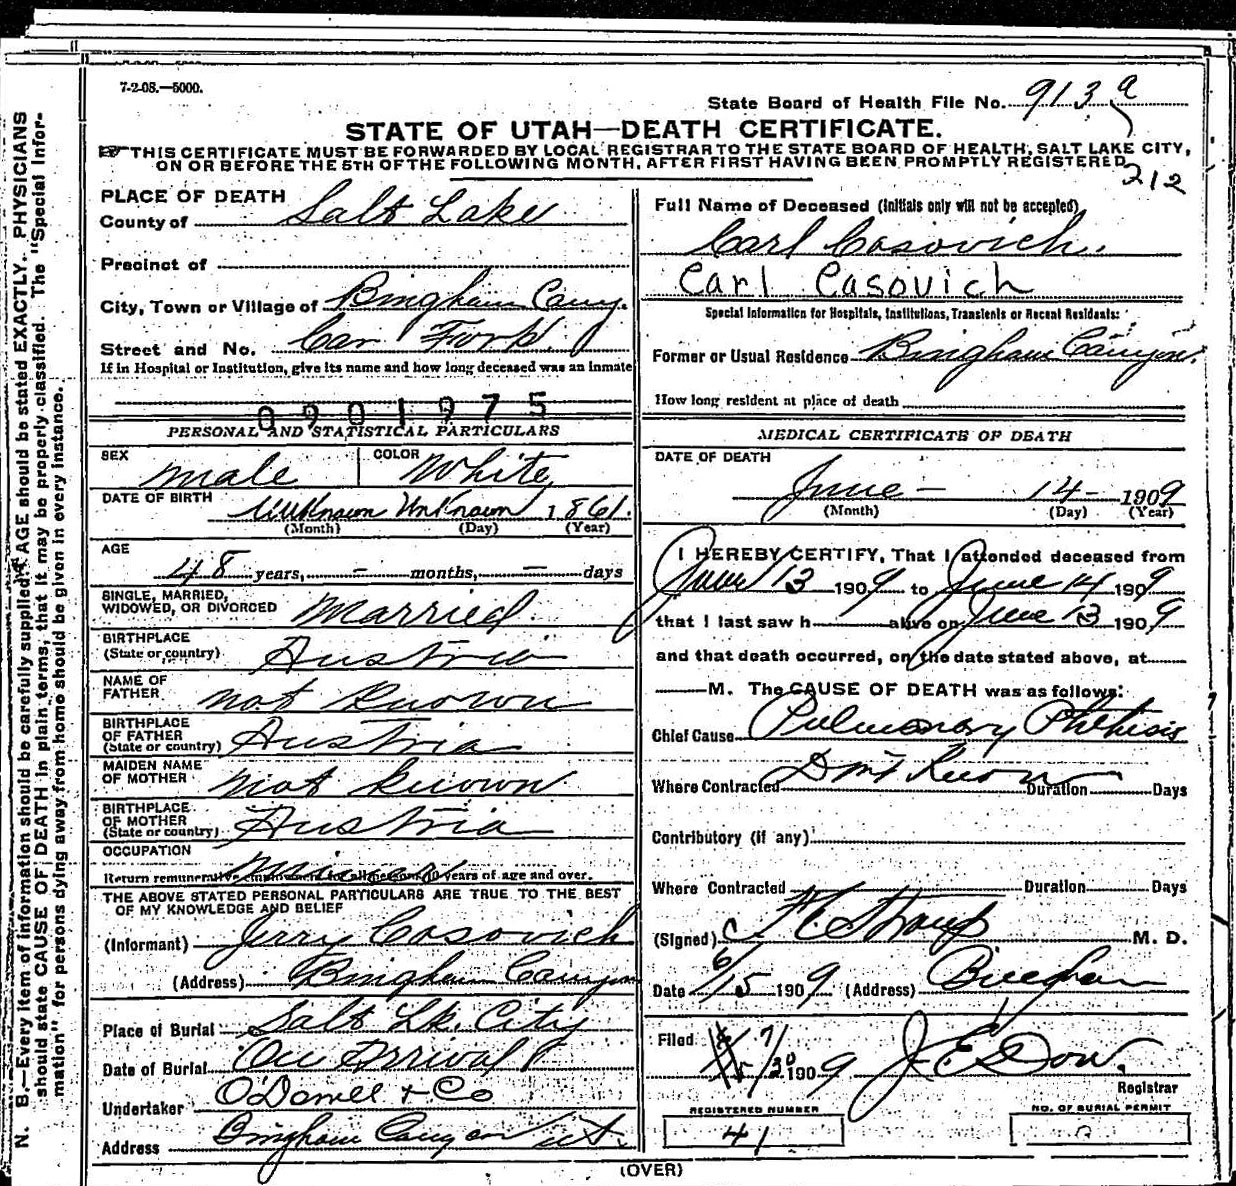 7-2-08.—5000.
State Board of Health File No. 913 a
STATE OF UTAH—DEATH CERTIFICATE.
THIS CERTIFICATE MUST BE FORWARDED BY LOCAL REGISTRAR TO THE STATE BOARD OF HEALTH, SALT LAKE CITY,
ON OR BEFORE THE 5TH OF THE FOLLOWING MONTH, AFTER FIRST HAVING BEEN PROMPTLY REGISTERED
212
PLACE OF DEATH
County of Salt Lake
Precinct of
City, Town or Village of Bingham Cany.
Street and No. Carr Fork
If in Hospital or Institution, give its name and how long deceased was an inmate
0901975
PERSONAL AND STATISTICAL PARTICULARS
SEX male COLOR White
DATE OF BIRTH Unknown Unknown 1861
(Month) (Day) (Year)
AGE
48 years, – months, – days
SINGLE, MARRIED,
WIDOWED, OR DIVORCED Married
BIRTHPLACE
(State or country) Austria
NAME OF
FATHER not known
BIRTHPLACE
OF FATHER
(State or country) Austria
MAIDEN NAME
OF MOTHER not known
BIRTHPLACE
OF MOTHER
(State or country) Austria
OCCUPATION
Miner
Return remunerative employment for all persons 10 years of age and over.
THE ABOVE STATED PERSONAL PARTICULARS ARE TRUE TO THE BEST
OF MY KNOWLEDGE AND BELIEF
(Informant) Jerry Casovich
(Address) Bingham Canyon
Place of Burial Salt Lk. City
Date of Burial On Arrival
Undertaker O'Donnell + Co
Address Bingham Canyon Ut.
Full Name of Deceased (Initials only will not be accepted)
Carl Casovich.
Carl Casovich
Special Information for Hospitals, Institutions, Transients or Recent Residents:
Former or Usual Residence Bingham Canyon.
How long resident at place of death
MEDICAL CERTIFICATE OF DEATH
DATE OF DEATH
June – 14 – 1909
(Month) (Day) (Year)
I HEREBY CERTIFY, That I attended deceased from
June 13 1909 to June 14 1909
that I last saw h alive on June 13 1909
and that death occurred, on the date stated above, at
M. The CAUSE OF DEATH was as follows:
Chief Cause Pulmonary Phthisis
Where Contracted Dont Know Duration Days
Contributory (if any)
Where Contracted Duration Days
(Signed) M. D.
Date 6/15 1909 (Address) Bingham
Filed 7/30 1909 J. E. Dow.
Registrar
REGISTERED NUMBER
41
NO. OF BURIAL PERMIT
(OVER)
N. B.—Every item of information should be carefully supplied. AGE should be stated EXACTLY. PHYSICIANS
should state CAUSE OF DEATH in plain terms, that it may be properly classified. The "Special Infor-
mation" for persons dying away from home should be given in every instance.